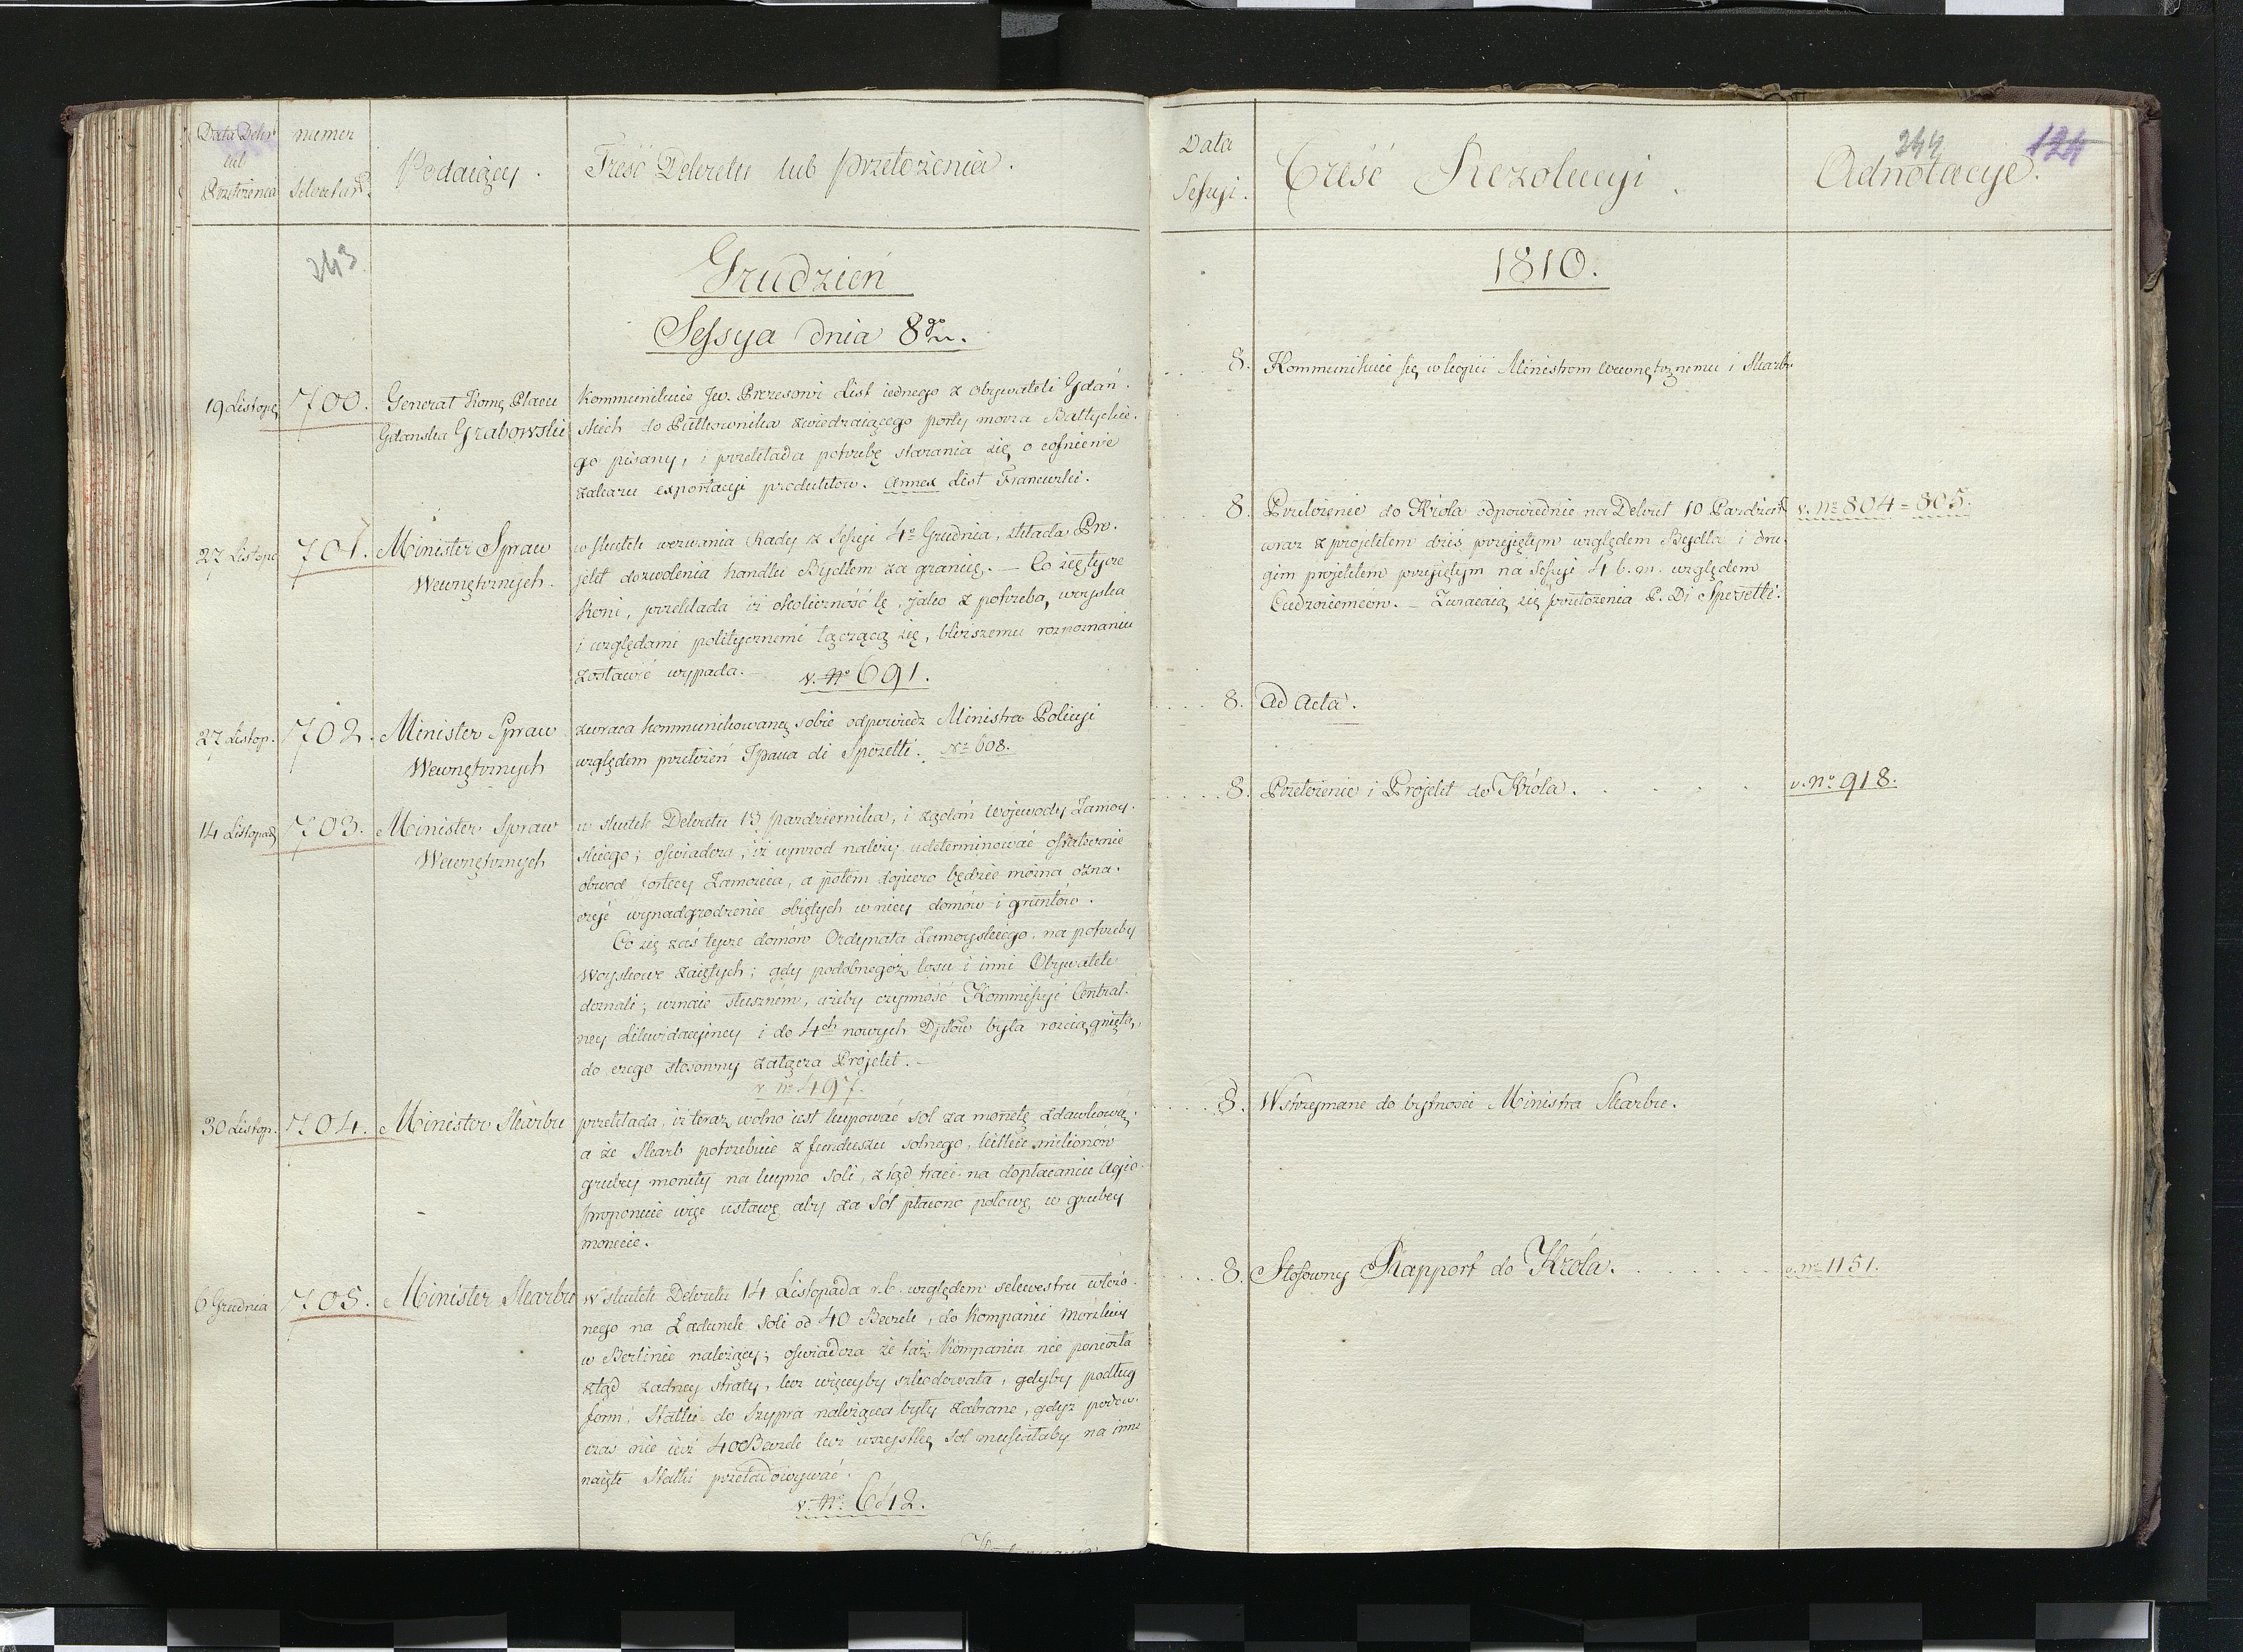 Data Dekr
lub
Przełożenia
numer
Sekretar.
Podaiący.
Treść Dekretu lub przełożenia.
243
Grudzień
Sessya dnia 8go
19 Listop
700.
Generał Kome Placu
Gdanska Grabowski
Kommunikuie Jw. Prezesowi List iednego z obywateli Gdań-
skich do Pułkownika zwiedzaiącego porty morza Bałtyckie-
go pisany, i przekłada potrzebę starania się o cofnienie
zakazu exportacyi produktów. Annex List Francuzki.
27 Listop
701.
Minister Spraw
Wewnętrznych.
w skutek wezwania Rady z Sessyi 4o Grudnia, składa Pro-
jekt dozwolenia handlu Bydłem za granicę. – Co się tycze
Koni, przekłada iż okoliczność tę, jako z potrzebą woyska
i względami politycznemi łączącą się, bliższemu rozpoznaniu
zostawić wypada.
v. No 691.
27 Listop.
702.
Minister Spraw
Wewnętrznych
zwraca kommunikowaną sobie odpowiedz Ministra Policyi
względem przełożeń JPana di Spezetti. No 608.
14 Listopad
703.
Minister Spraw
Wewnętrznych
w skutek Dekretu 13 pazdziernika, i żądań Wojewody Zamoy-
skiego; oświadcza, iż wprzod należy udeterminować ostatecznie
obwod fortecy Zamościa, a potem dopiero będzie można ozna-
czyć wynadgrodzenie obiętych w niey domów i gruntów.
Co się zaś tycze domów Ordynata Zamoyskiego, na potrzeby
Woyskowe zaiętych; gdy podobnegoż losu i inni Obywatele
doznali; uznaie słusznem, ażeby czynność Kommissyi Central-
ney Likwidacyiney i do 4ch nowych Dptów była rozciągnięta,
do czego stosowny załącza Projekt. –
v. no 497.
30 Listop.
704.
Minister Skarbu
przekłada, iż teraz wolno iest kupować sol za monetę zdawkową,
a że Skarb potrzebuie z funduszu solnego, kilku milionów
grubey monety na kupno soli, ztąd traci na dopłacaniu Agio.
proponuie więc ustawę aby za Sól płacono połowę w grubey
monecie.
6 Grudnia
705.
Minister Skarbu
w skutek Dekretu 14 Listopada r. b. względem sekwestru włożo-
nego na Ładunek soli od 40 Beczek, do Kompanii morskiey
w Berlinie należący; oświadcza że taż Kompania nie poniosła
ztąd żadney straty, lecz więceyby szkodowała, gdyby podług
form, Statki do Szypra należące były zabrane, gdyż podow-
czas nie iuż 40 Beczek lecz wszystkę sol musiałaby na inne
naięte Statki przeładowywać.
v. No 612.
Data
Sessyi.
Treść Rezolucyi.
Adnotacye.
244
124
1810.
8. Kommunikuie się w kopii Ministrom Wewnętrznemu i Skarbu
8. Przełożenie do Króla odpowiednie na Dekret 10 Pazdziern
wraz z projektem dziś przyiętym względem Bydła i dru-
gim projektem przyiętym na Sessyi 4 b. m. względem
Cudzoziemców. – Zwracaią się przełożenia P. Di Spezetti.
v. No 804 = 805.
8. Ad Acta.
8. Przełożenie i Projekt do Króla.
v. No 918.
8. Wstrzymane do bytności Ministra Skarbu.
8. Stosowny Rapport do Króla.
v. no 1151.